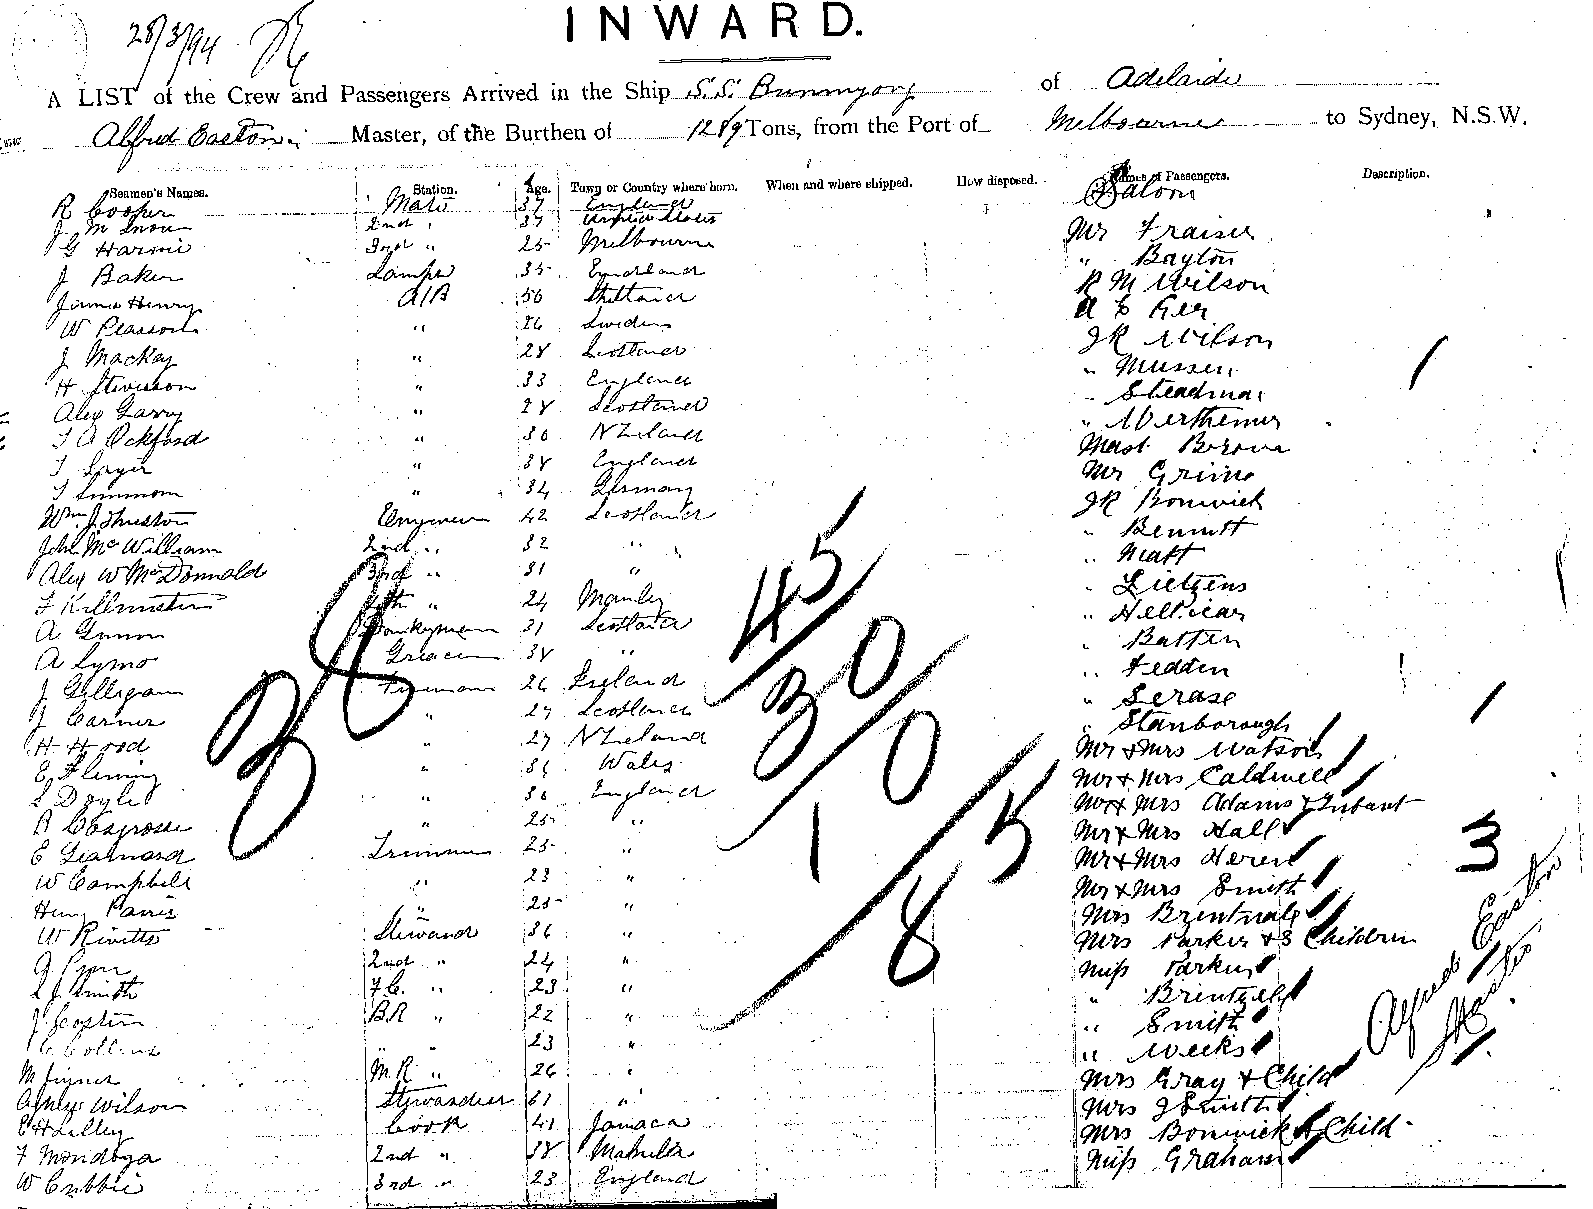 INWARD.
28/3/94
A LIST of the Crew and Passengers Arrived in the Ship S.S. Buninyong of Adelaide
Alfred Easton Master, of the Burthen of 1289 Tons, from the Port of Melbourne to Sydney, N.S.W.
Seamen's Names. Station. Age. Town or Country where born. When and where shipped. How disposed. Names of Passengers. Description.
Saloon
R Cooper Mate 37 England
J M Snow 2nd " 37
G Harmie 3rd " 25 Melbourne
J Baker Lamps 35
James Henry A/B 50
W Pearson " 26 Sweden
J Mackay " 28 Scotland
H Stevenson " 33 England
Alex Garry " 28 Scotland
T A Ockford " 30 N Zeland
T Sayer " 38 England
T Simmons " 34 Germany
Wm Johnston 42 Scotland
John McWilliam 2nd " 32 "
Alex W McDonnald 3rd " 31 "
F Killminster 4th " 24 Manley
A Gunn Donkeyman 31 Scotland
A Symo 38 "
J Gilligan Fireman 26 Ireland
J Carner " 27 Scotland
H Hood " 27 N Zeland
E Fleming " 36 Wales
S Doyle " 36 England
A Cosgrove " 25 "
E Trimmer 25 "
W Campbell " 23 "
Henry Parris " 25 "
W Rivitts Steward 36 "
2nd " 24 "
S J Smith F.C. " 23 "
J B.R " 22 "
C Collins " " 23 "
M M.R " 26 "
Agnes Wilson Stewardess 61 "
E H Lilley Cook 41 Jamaca
F Mondoza 2nd " 38 Manilla
W Cribbie 3rd " 23 England
Mr Fraiser
" Bayton
R M Wilson
A E Ger
J R Wilson
" Mussen
" Steadman
" Wertheimer
Mast Berova
Mr Grime
J R Bonwick
" Bennett
" Matt
" Lietzens
" Hellicar
" Batten
" Fedden
" Scrase
" Stanborough
Mr & Mrs Watson
Mr & Mrs Caldwell
Mr & Mrs Adams & Infant
Mr & Mrs Hall
Mr & Mrs Heren
Mr & Mrs Smith
Mrs Brentnall
Mrs Parker & 3 Children
Miss Parker
" Brentnall
" Smith
" Weeks
Mrs Gray & Child
Mrs J Smith
Mrs Bonwick & Child
Miss Graham
38
45
30
10
85
3
Alfred Easton
Master